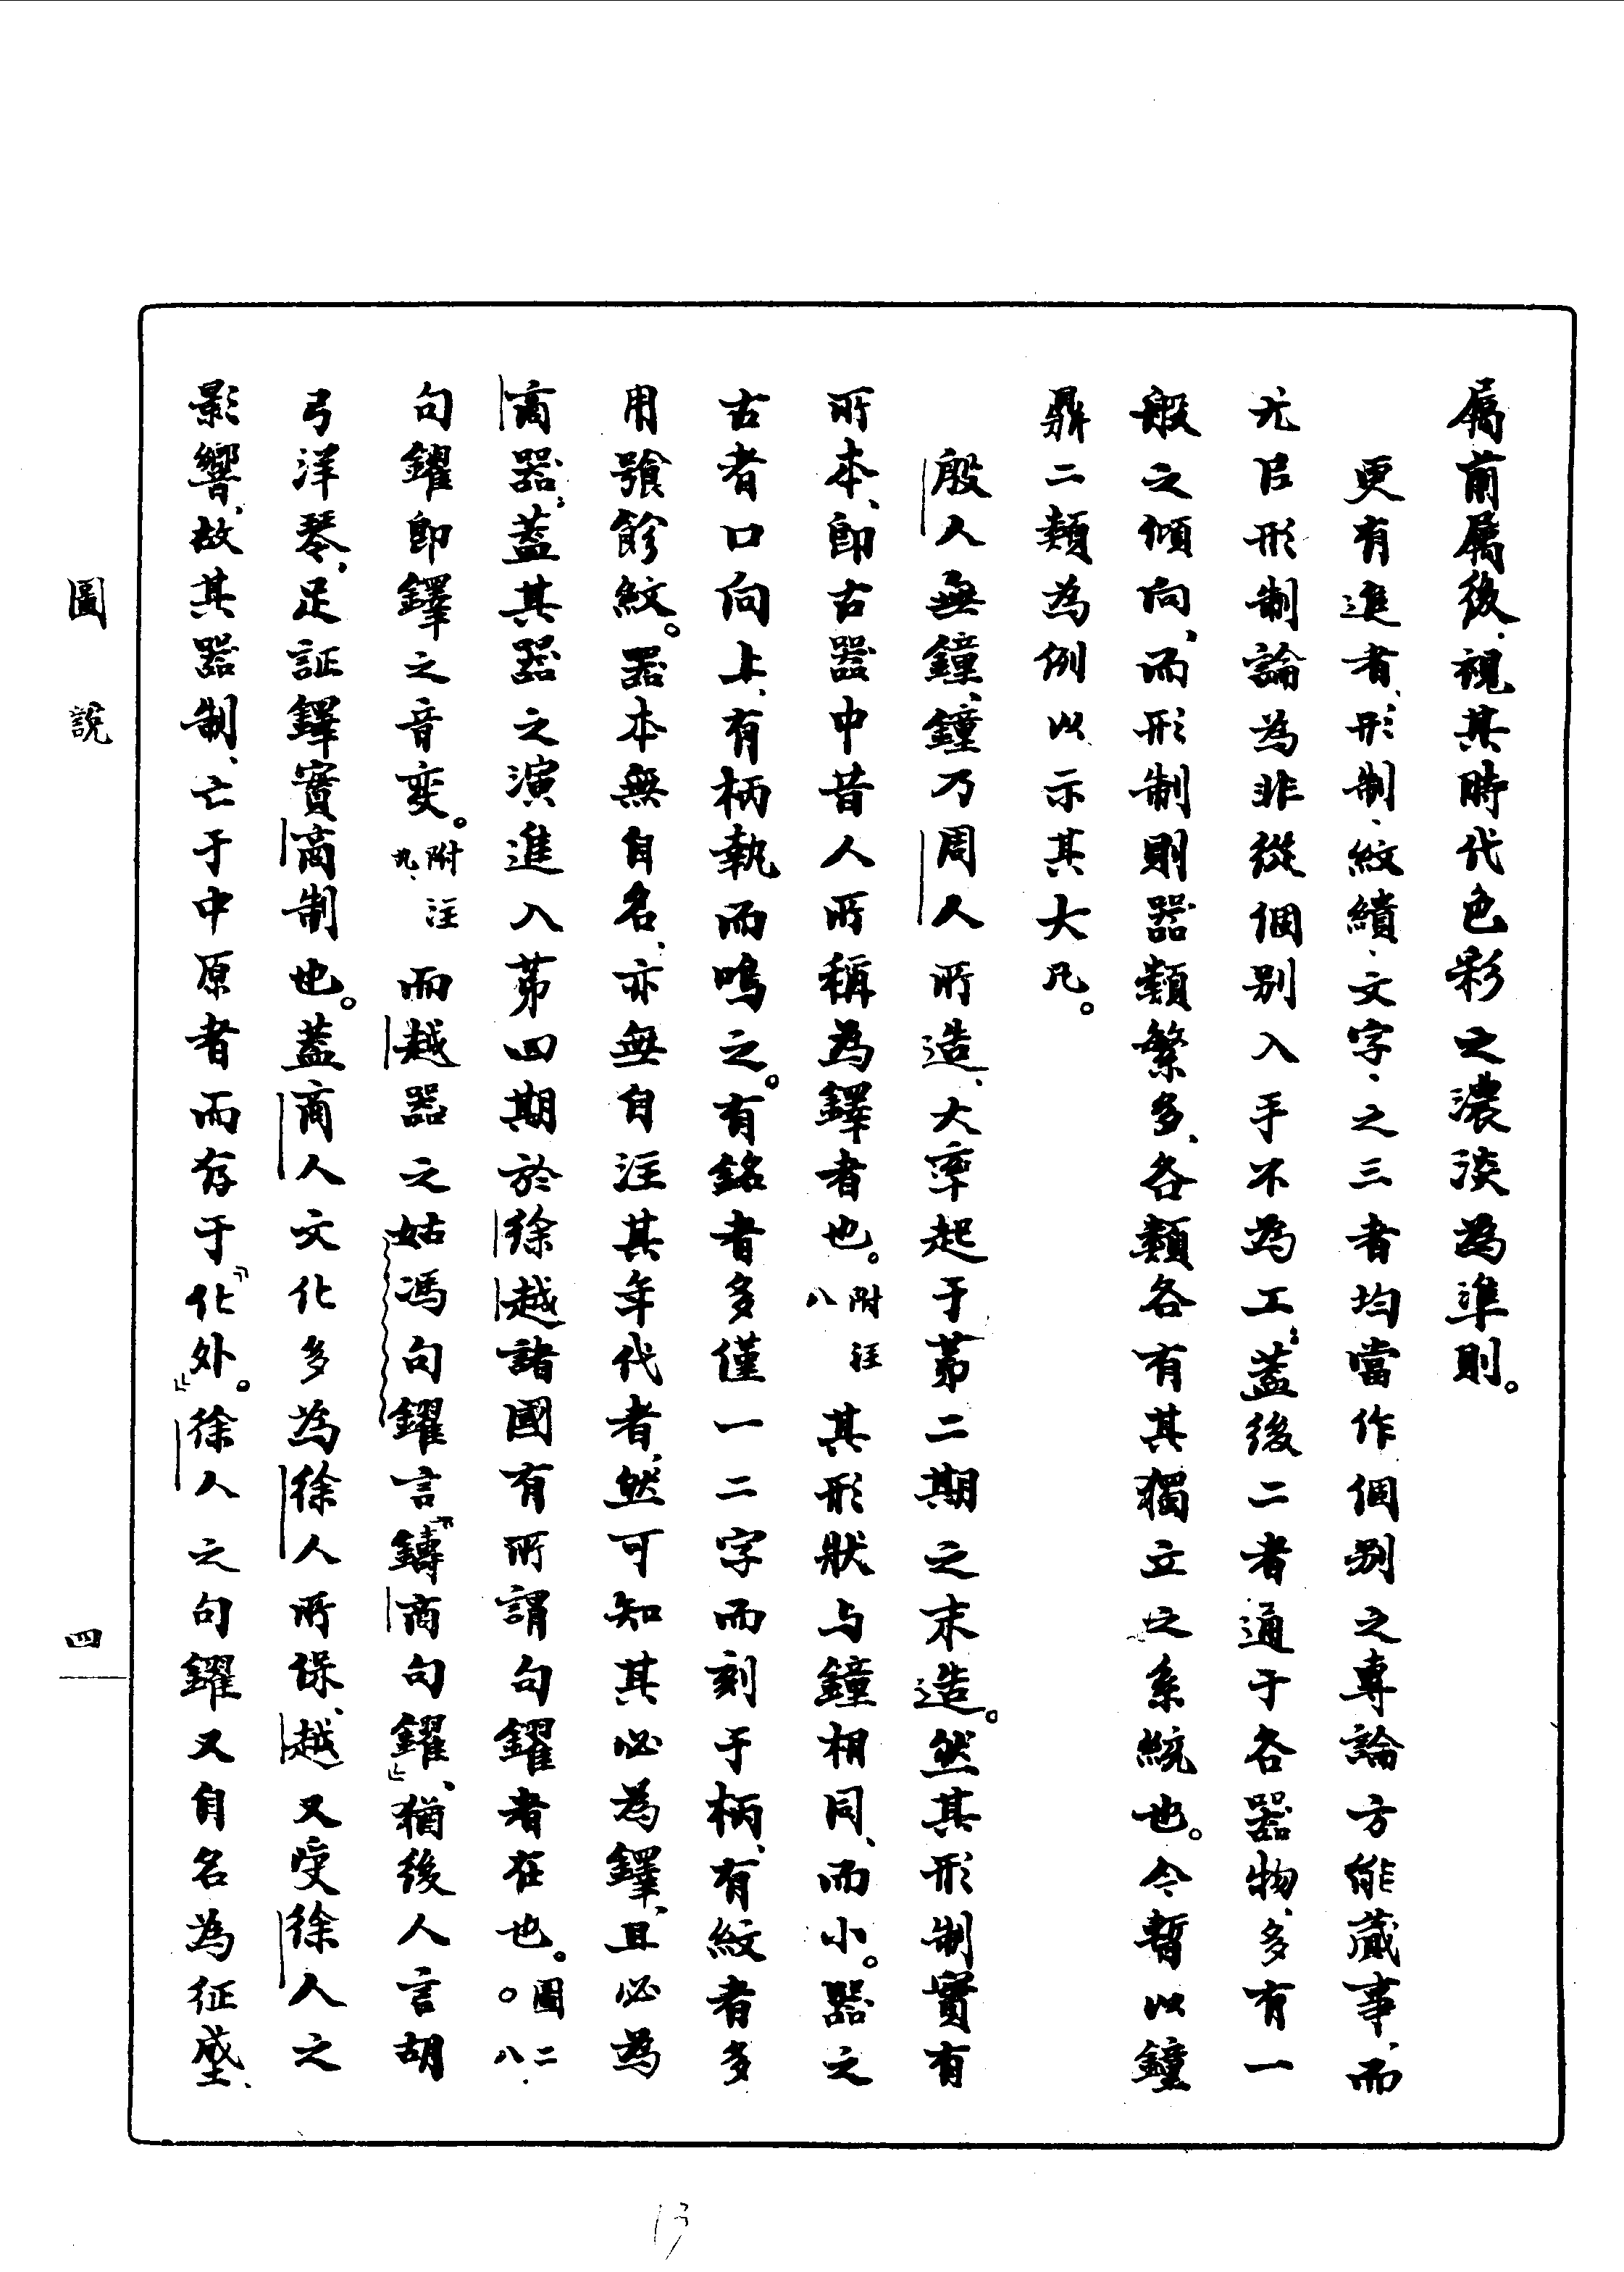 屬前屬後，視其時代色彩之濃淡為準則。
更有進者，形制、紋繢、文字、之三者均當作個別之專論方能蕆事，而
尤㠯形制論為非從個別入手不為工；蓋後二者通于各器物，多有一
般之傾向，而形制則器類繁多，各類各有其獨立之系統也。今暫以鐘
鼎二類為例以示其大凡。
殷人無鐘，鐘乃周人所造，大率起于苐二期之末造。然其形制實有
所本，即古器中昔人所稱為鐸者也。附注八其形狀与鐘相同，而小。器之
古者口向上，有柄執而鳴之。有銘者多僅一二字而刻于柄，有紋者多
用饕餮紋。器本無自名，亦無自注其年代者，然可知其必為鐸，且必為
商器；蓋其器之演進入苐四期於徐越諸國有所謂句鑃者在也。圖二八。
句鑃即鐸之音变。附注九、而越器之姑馮句鑃言「鑄商句鑃」，猶後人言胡
弓洋琴，足証鐸實商制也。蓋商人文化多為徐人所保，越又受徐人之
影響，故其器制，亡于中原者而存于「化外」。徐人之句鑃又自名為征㙻，
圖說
四
13